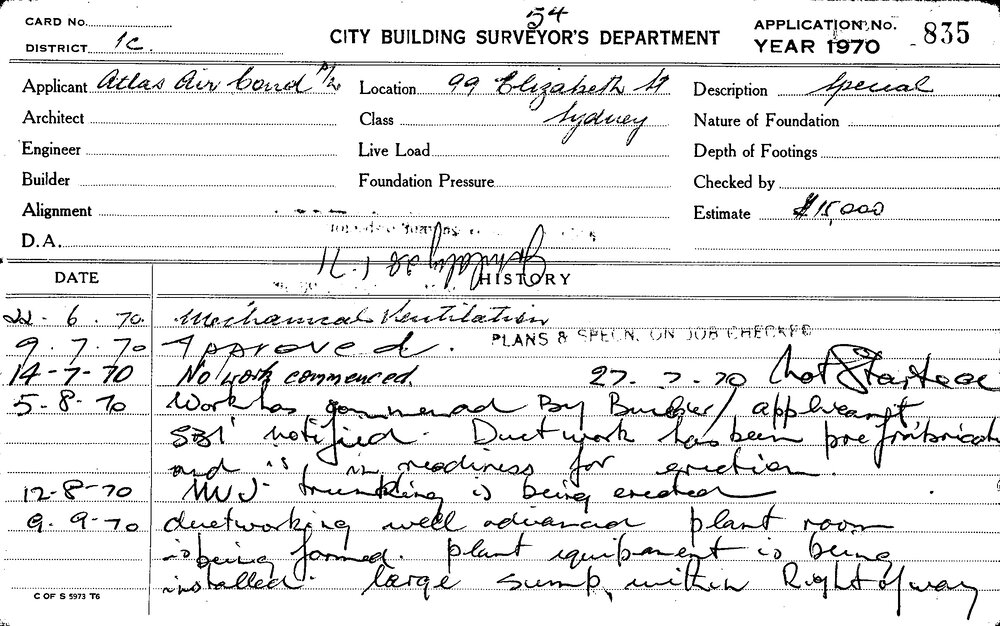 54
CARD No.
CITY BUILDING SURVEYOR'S DEPARTMENT
APPLICATION No. 835
DISTRICT 1C.
YEAR 1970
Applicant Atlas Air Cond P/L
Location 99 Elizabeth St
Description Special
Architect
Class Sydney
Nature of Foundation
Engineer
Live Load
Depth of Footings
Builder
Foundation Pressure
Checked by
Alignment
Estimate $15,000
D.A.
DATE
HISTORY
22.6.70. Mechanical Ventilation
PLANS & SPECN. ON JOB CHECKED
9.7.70 Approved.
14-7-70 No work commenced. 27.7.70 Not Started
5-8-70 Work has commenced By Builder/applicant
SBI notified. Ductwork has been prefabricated
and is in readiness for erection.
12-8-70 trunking is being erected
9.9-70 ductworking well advanced plant room
is being formed. plant equipment is being
installed. large sump within Right of way
C OF S 5973 T6